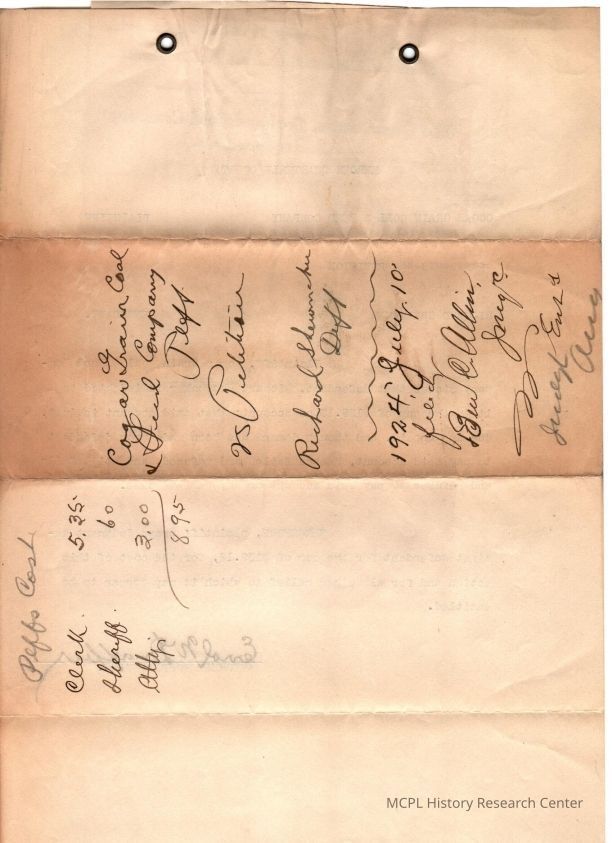 Cogar Grain Coal
& Feed Company
Pleff
vs Petition
Richard
Deft
1924, July 10
filed
Ben C Allin,
Judge
Judgt Ent'd
Aug
Peffs Cost
Clerk. 5.35
Sheriff. 60
Atty 3.00
8.95
MCPL History Research Center